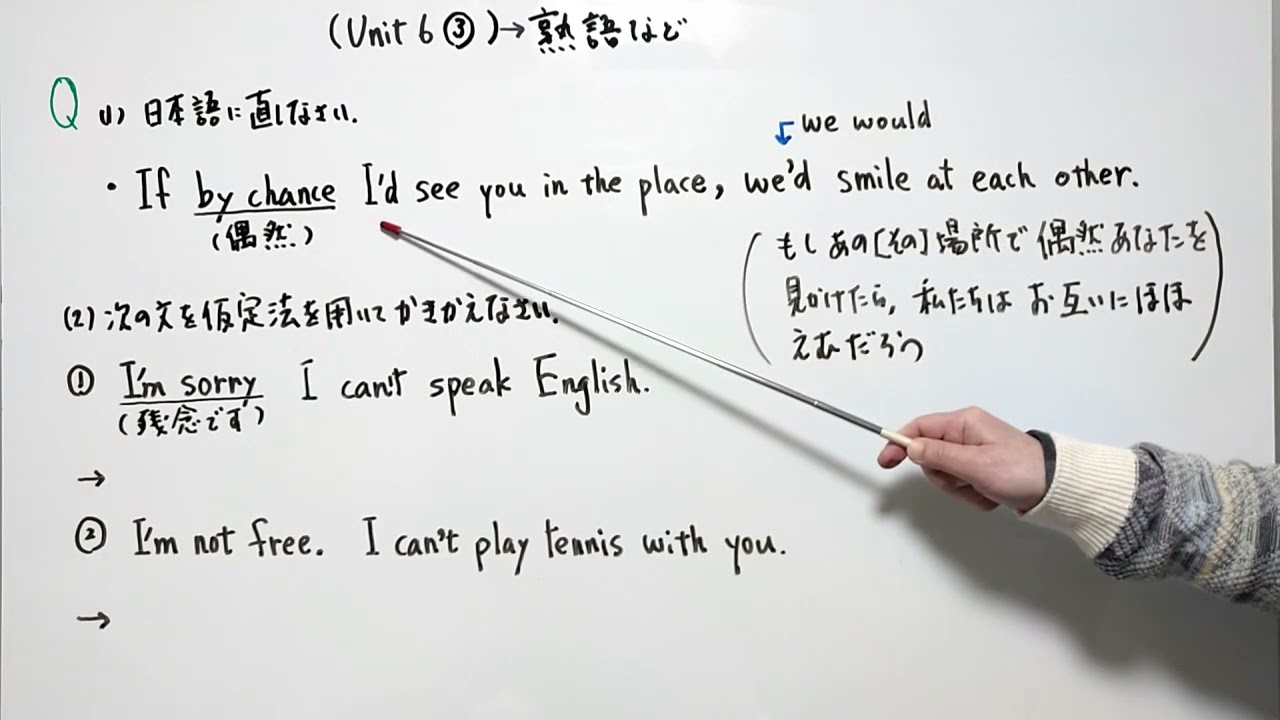 (Unit 6 ③)→熟語など
Q (1) 日本語に直しなさい.
we would
・If by chance I'd see you in the place, we'd smile at each other.
(偶然)
(もしあの[その]場所で偶然あなたを
見かけたら, 私たちはお互いにほほ
えむだろう)
(2) 次の文を仮定法を用いてかきかえなさい.
① I'm sorry I can't speak English.
(残念です)
→
② I'm not free. I can't play tennis with you.
→